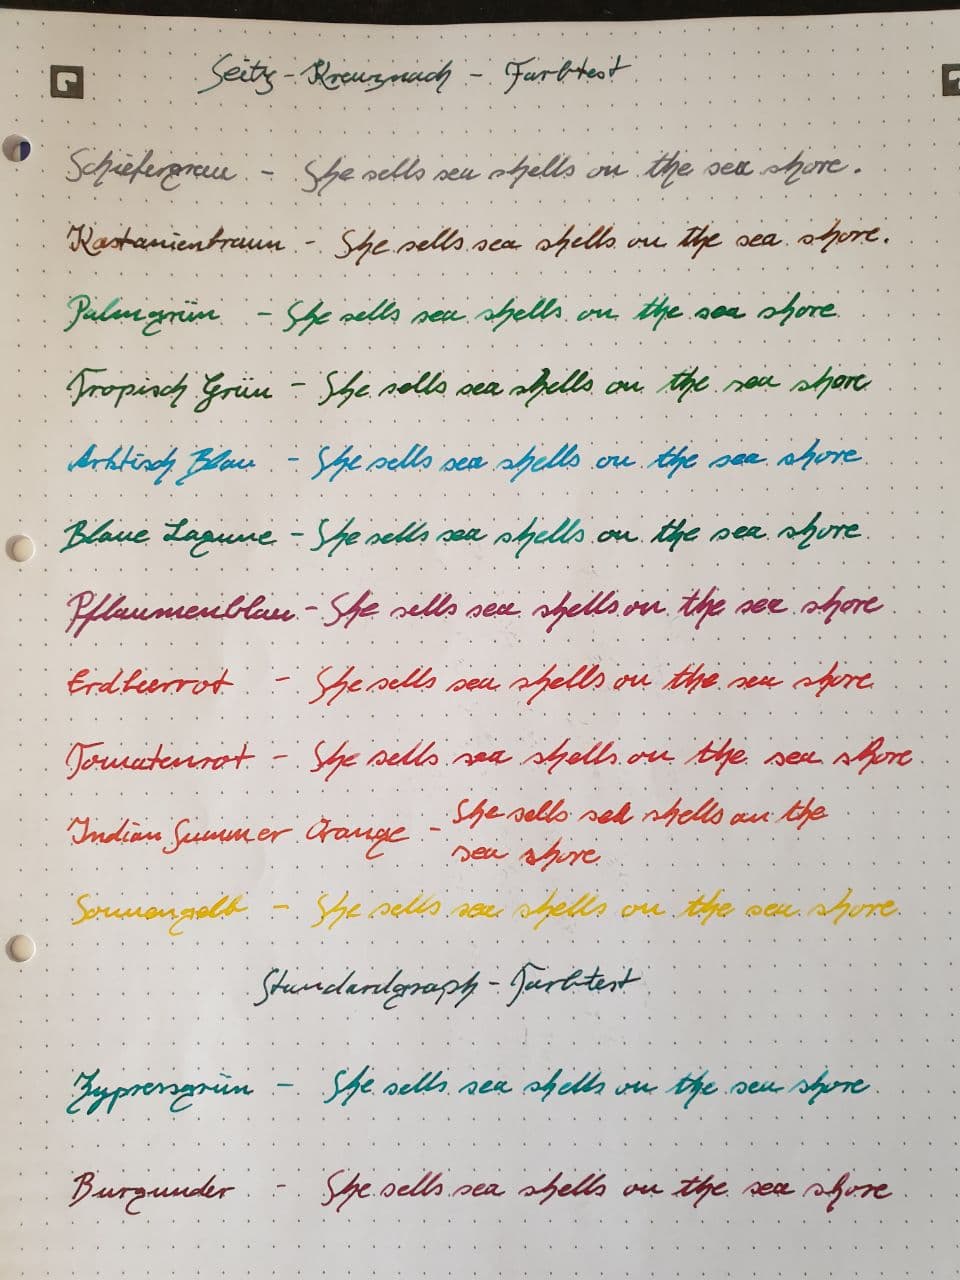 Seitz-Kreuznach - Farbtest
Schiefergrau - She sells sea shells on the sea shore.
Kastanienbraun - She sells sea shells on the sea shore.
Palmgrün - She sells sea shells on the sea shore
Tropisch Grün - She sells sea shells on the sea shore
Arktisch Blau - She sells sea shells on the sea shore
Blaue Lagune - She sells sea shells on the sea shore
Pflaumenblau - She sells sea shells on the sea shore
Erdbeerrot - She sells sea shells on the sea shore
Tomatenrot - She sells sea shells on the sea shore
Indian Summer Orange - She sells sea shells on the
sea shore
Sonnengelb - She sells sea shells on the sea shore
Standardgraph - Farbtest
Zypressgrün - She sells sea shells on the sea shore
Burgunder - She sells sea shells on the sea shore